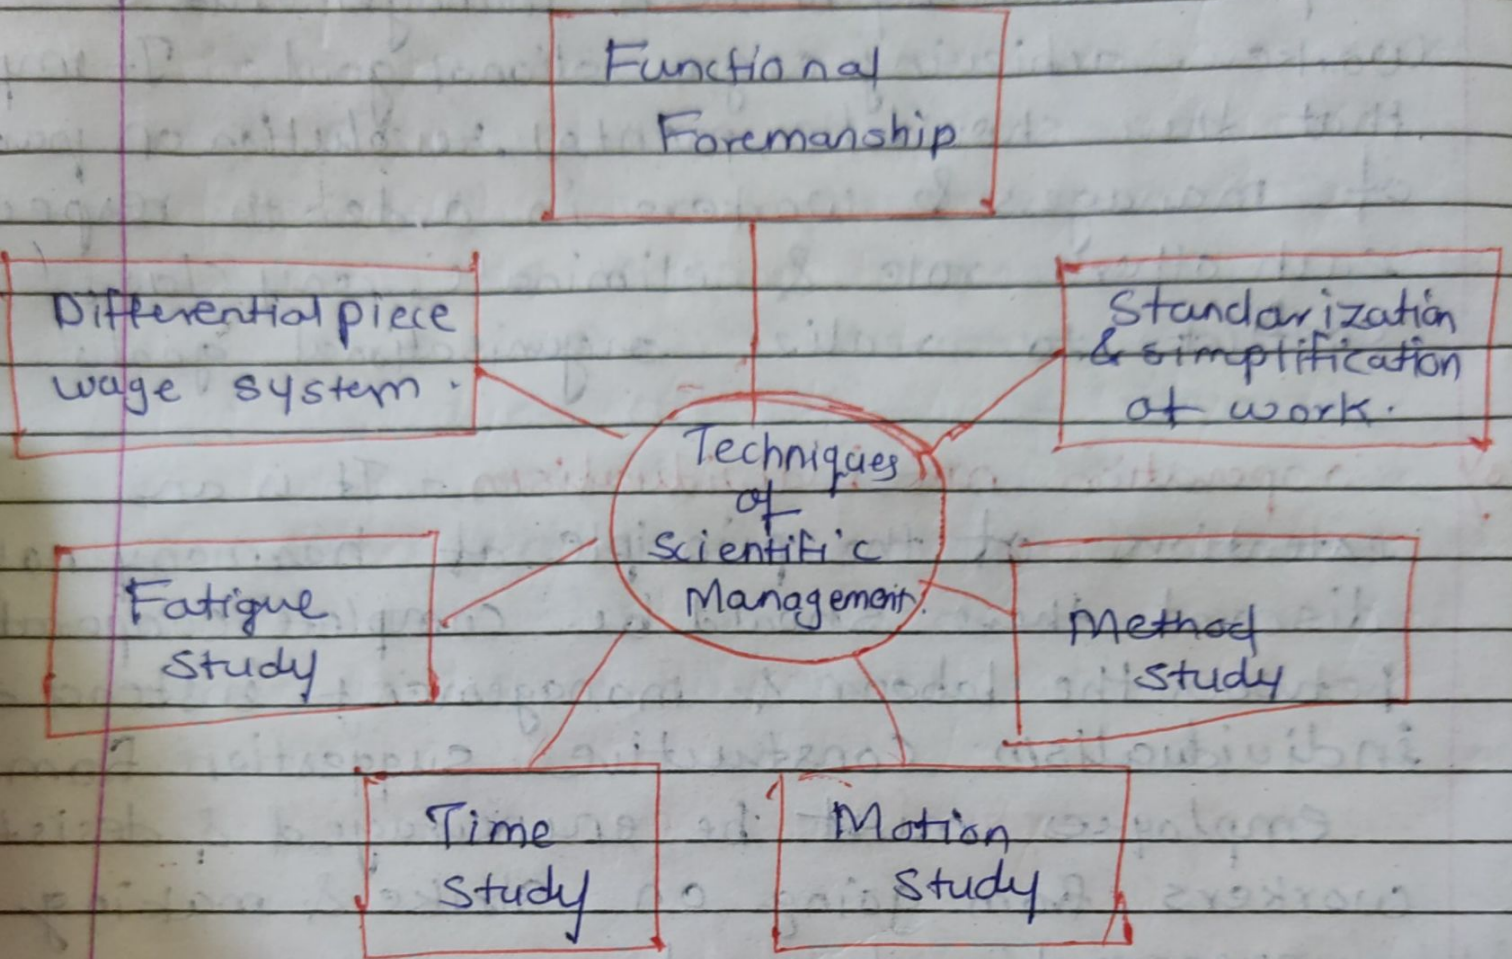 Functional
Foremanship
Differential piece
wage system.
Standarization
& simplification
of work.
Techniques
of
Scientific
Management.
Fatigue
study
Method
study
Time
study
Motion
study